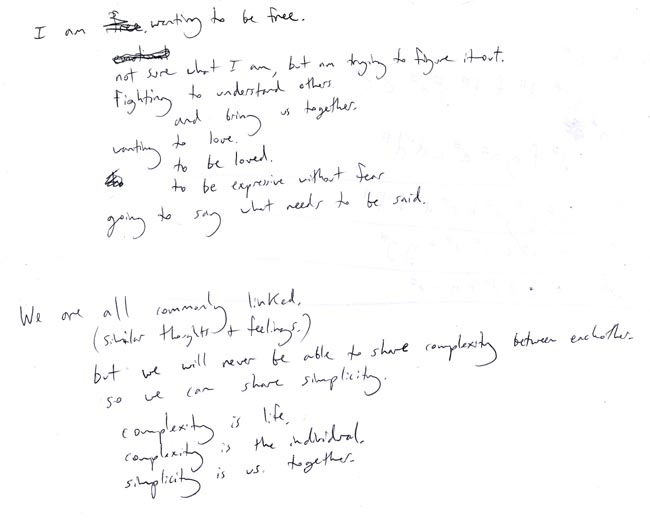 I am free, wanting to be free.
not sure what I am, but am trying to figure it out.
Fighting to understand others
and bring us together.
wanting to love.
to be loved.
to be expressive without fear
going to say what needs to be said.
We are all commonly linked.
(similar thoughts + feelings.)
but we will never be able to share complexity between eachother.
so we can share simplicity.
complexity is life.
complexity is the individual.
simplicity is us. together.